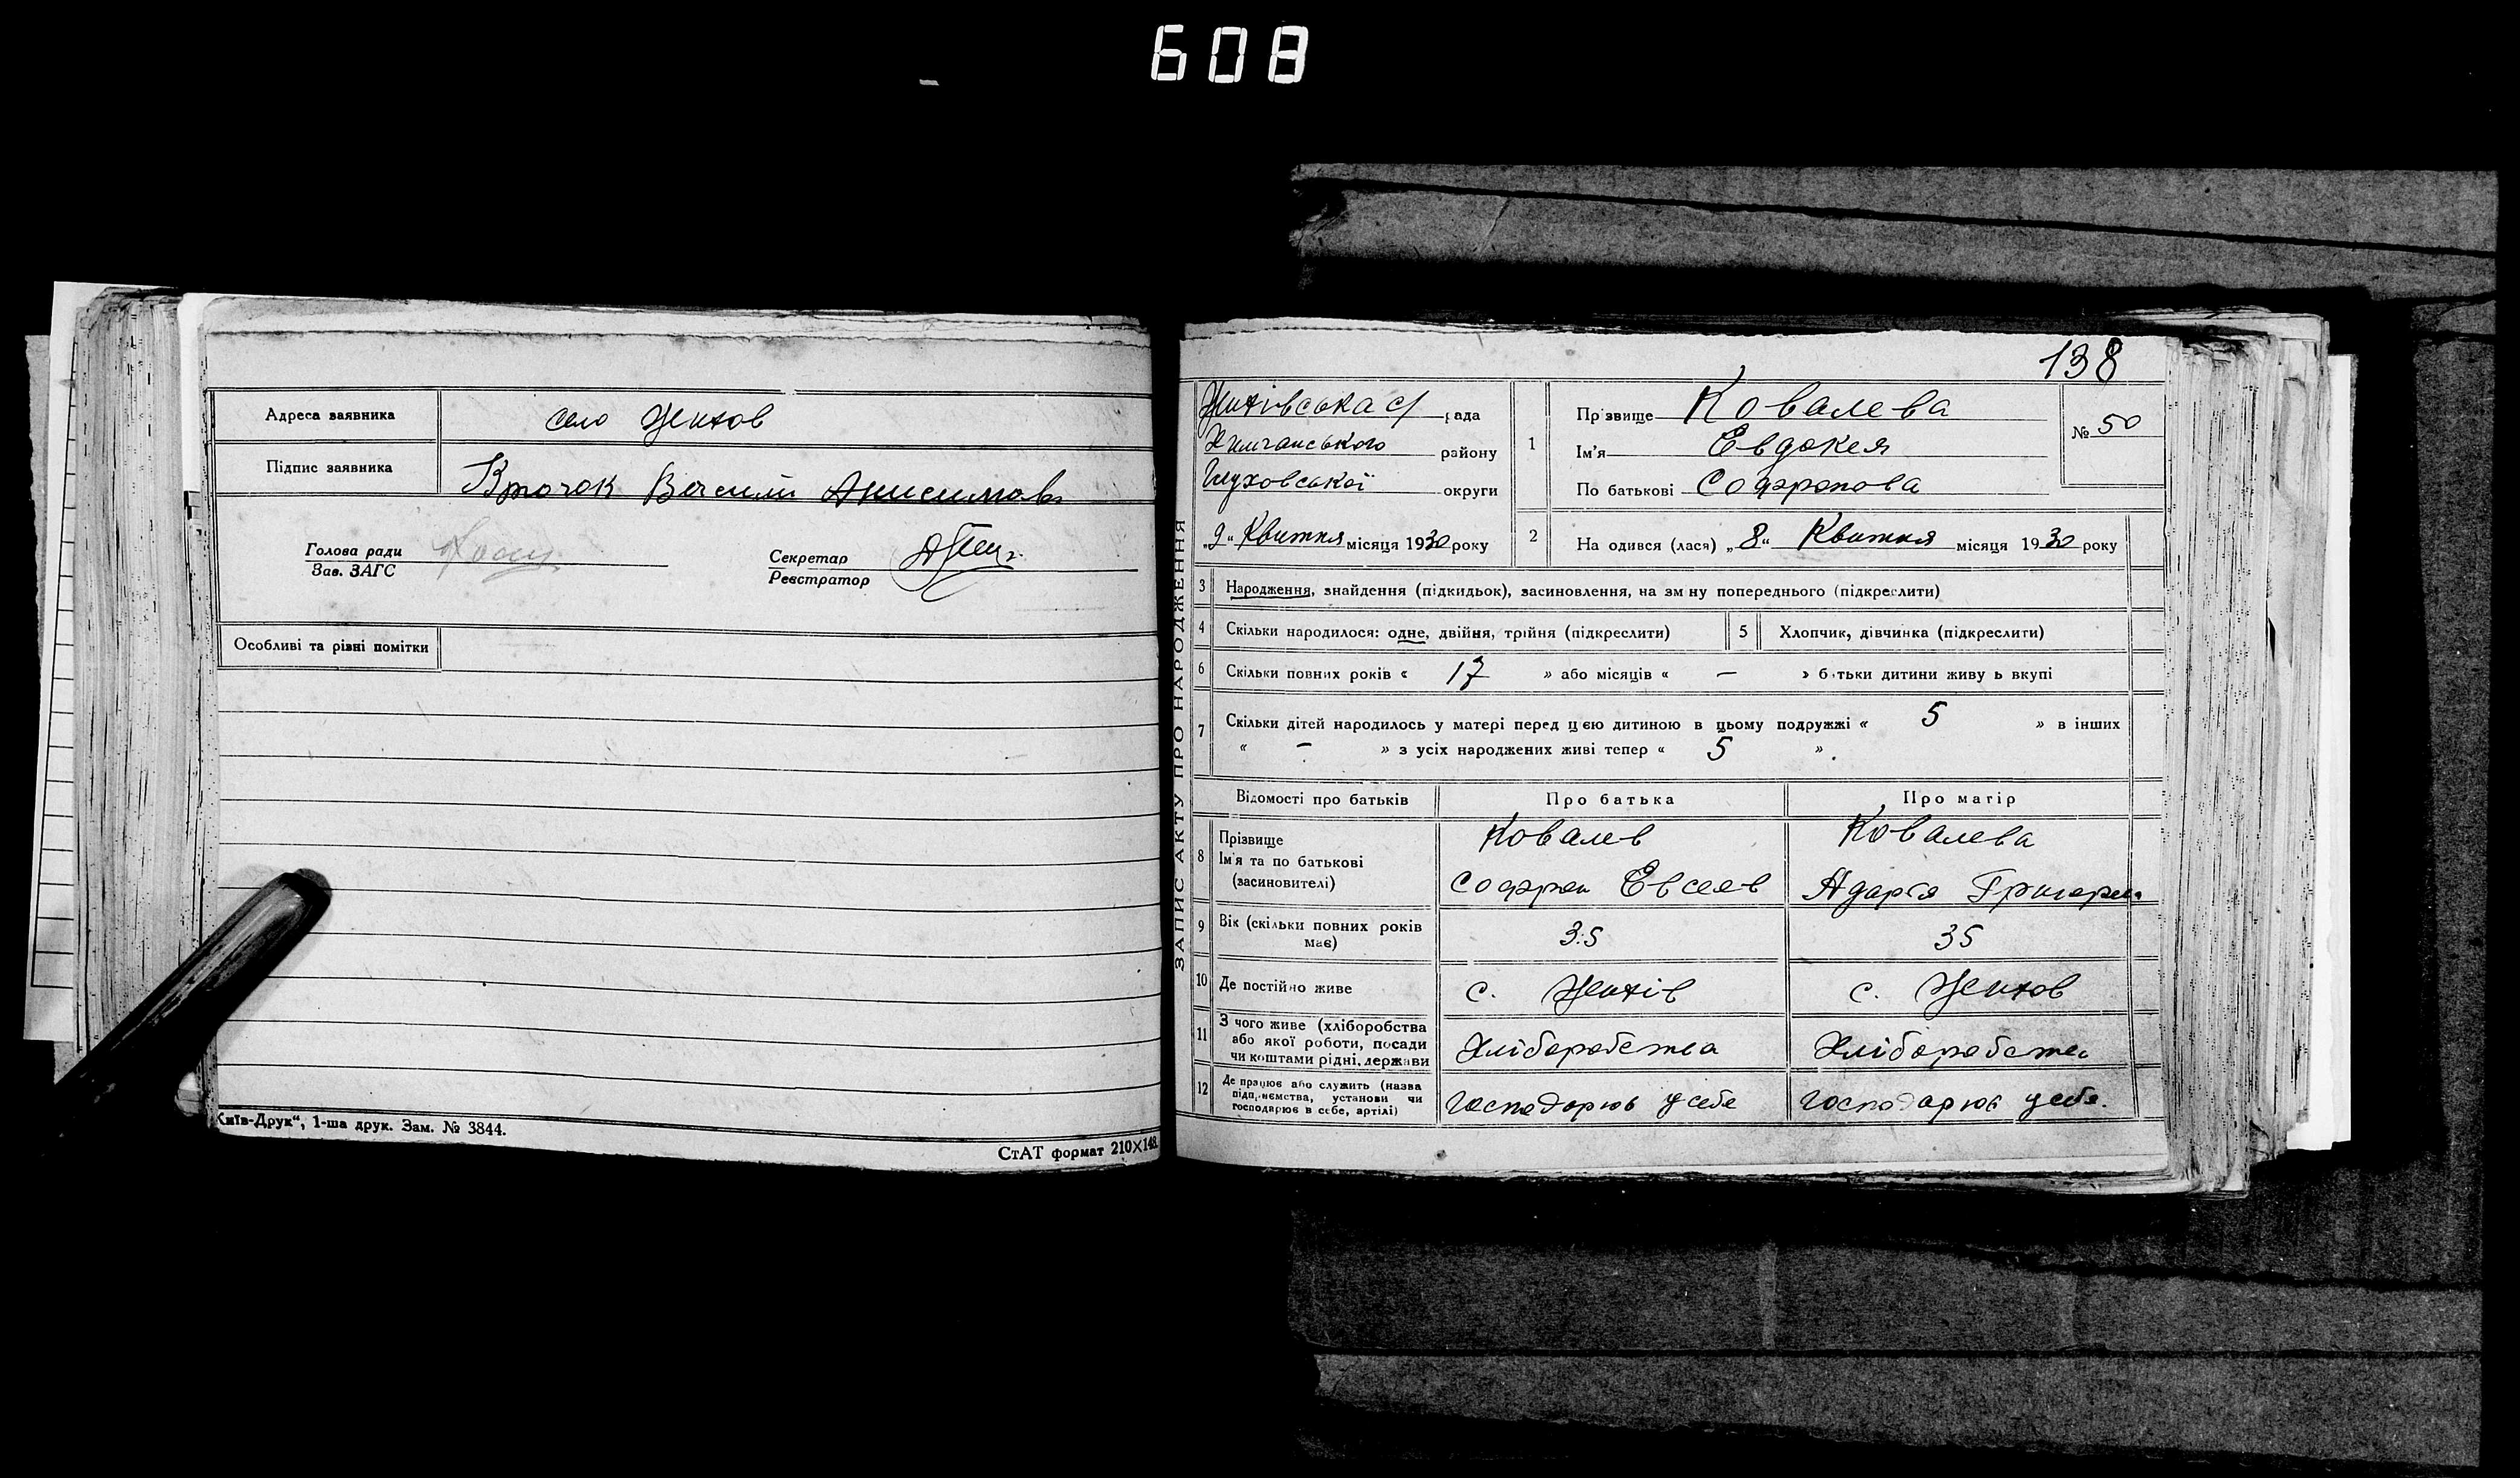 608
Адреса заявника село
Підпис заявника Василий
Голова ради
Зав. ЗАГС
Секретар
Реєстратор
Особливі та різні помітки
Київ-Друк“, 1-ша друк. Зам. № 3844.
СтАТ формат 210×148.
138
ЗАПИС АКТУ ПРО НАРОДЖЕННЯ
с/ рада
району
Глуховської округи
„9“ Квитня місяця 1930 року
1
Прізвище Ковалева
Ім'я Евдокея
По батькові Софронова
№ 50
2 На одився (лася) „8“ Квитня місяця 1930 року
3 Народження, знайдення (підкидьок), засиновлення, на зм ну попереднього (підкреслити)
4 Скільки народилося: одне, двійня, трійня (підкреслити)
5 Хлопчик, дівчинка (підкреслити)
6 Скільки повних років « 17 » або місяців « — » б тьки дитини живу ь вкупі
7 Скільки дітей народилось у матері перед цією дитиною в цьому подружжі « 5 » в інших
« — » з усіх народжених живі тепер « 5 ».
Відомості про батьків Про батька Про матір
8 Прізвище Ковалев Ковалева
Ім'я та по батькові
(засиновителі) Софрон Евсеев
9 Вік (скільки повних років має) 35 35
10 Де постійно живе с. с.
11 З чого живе (хліборобства
або якої роботи, посади
чи коштами рідні, держави Хліборобства
12 Де працює або служить (назва
підприємства, установи чи
господарює в себе, артілі) Господарює у себе Господарює у себе.